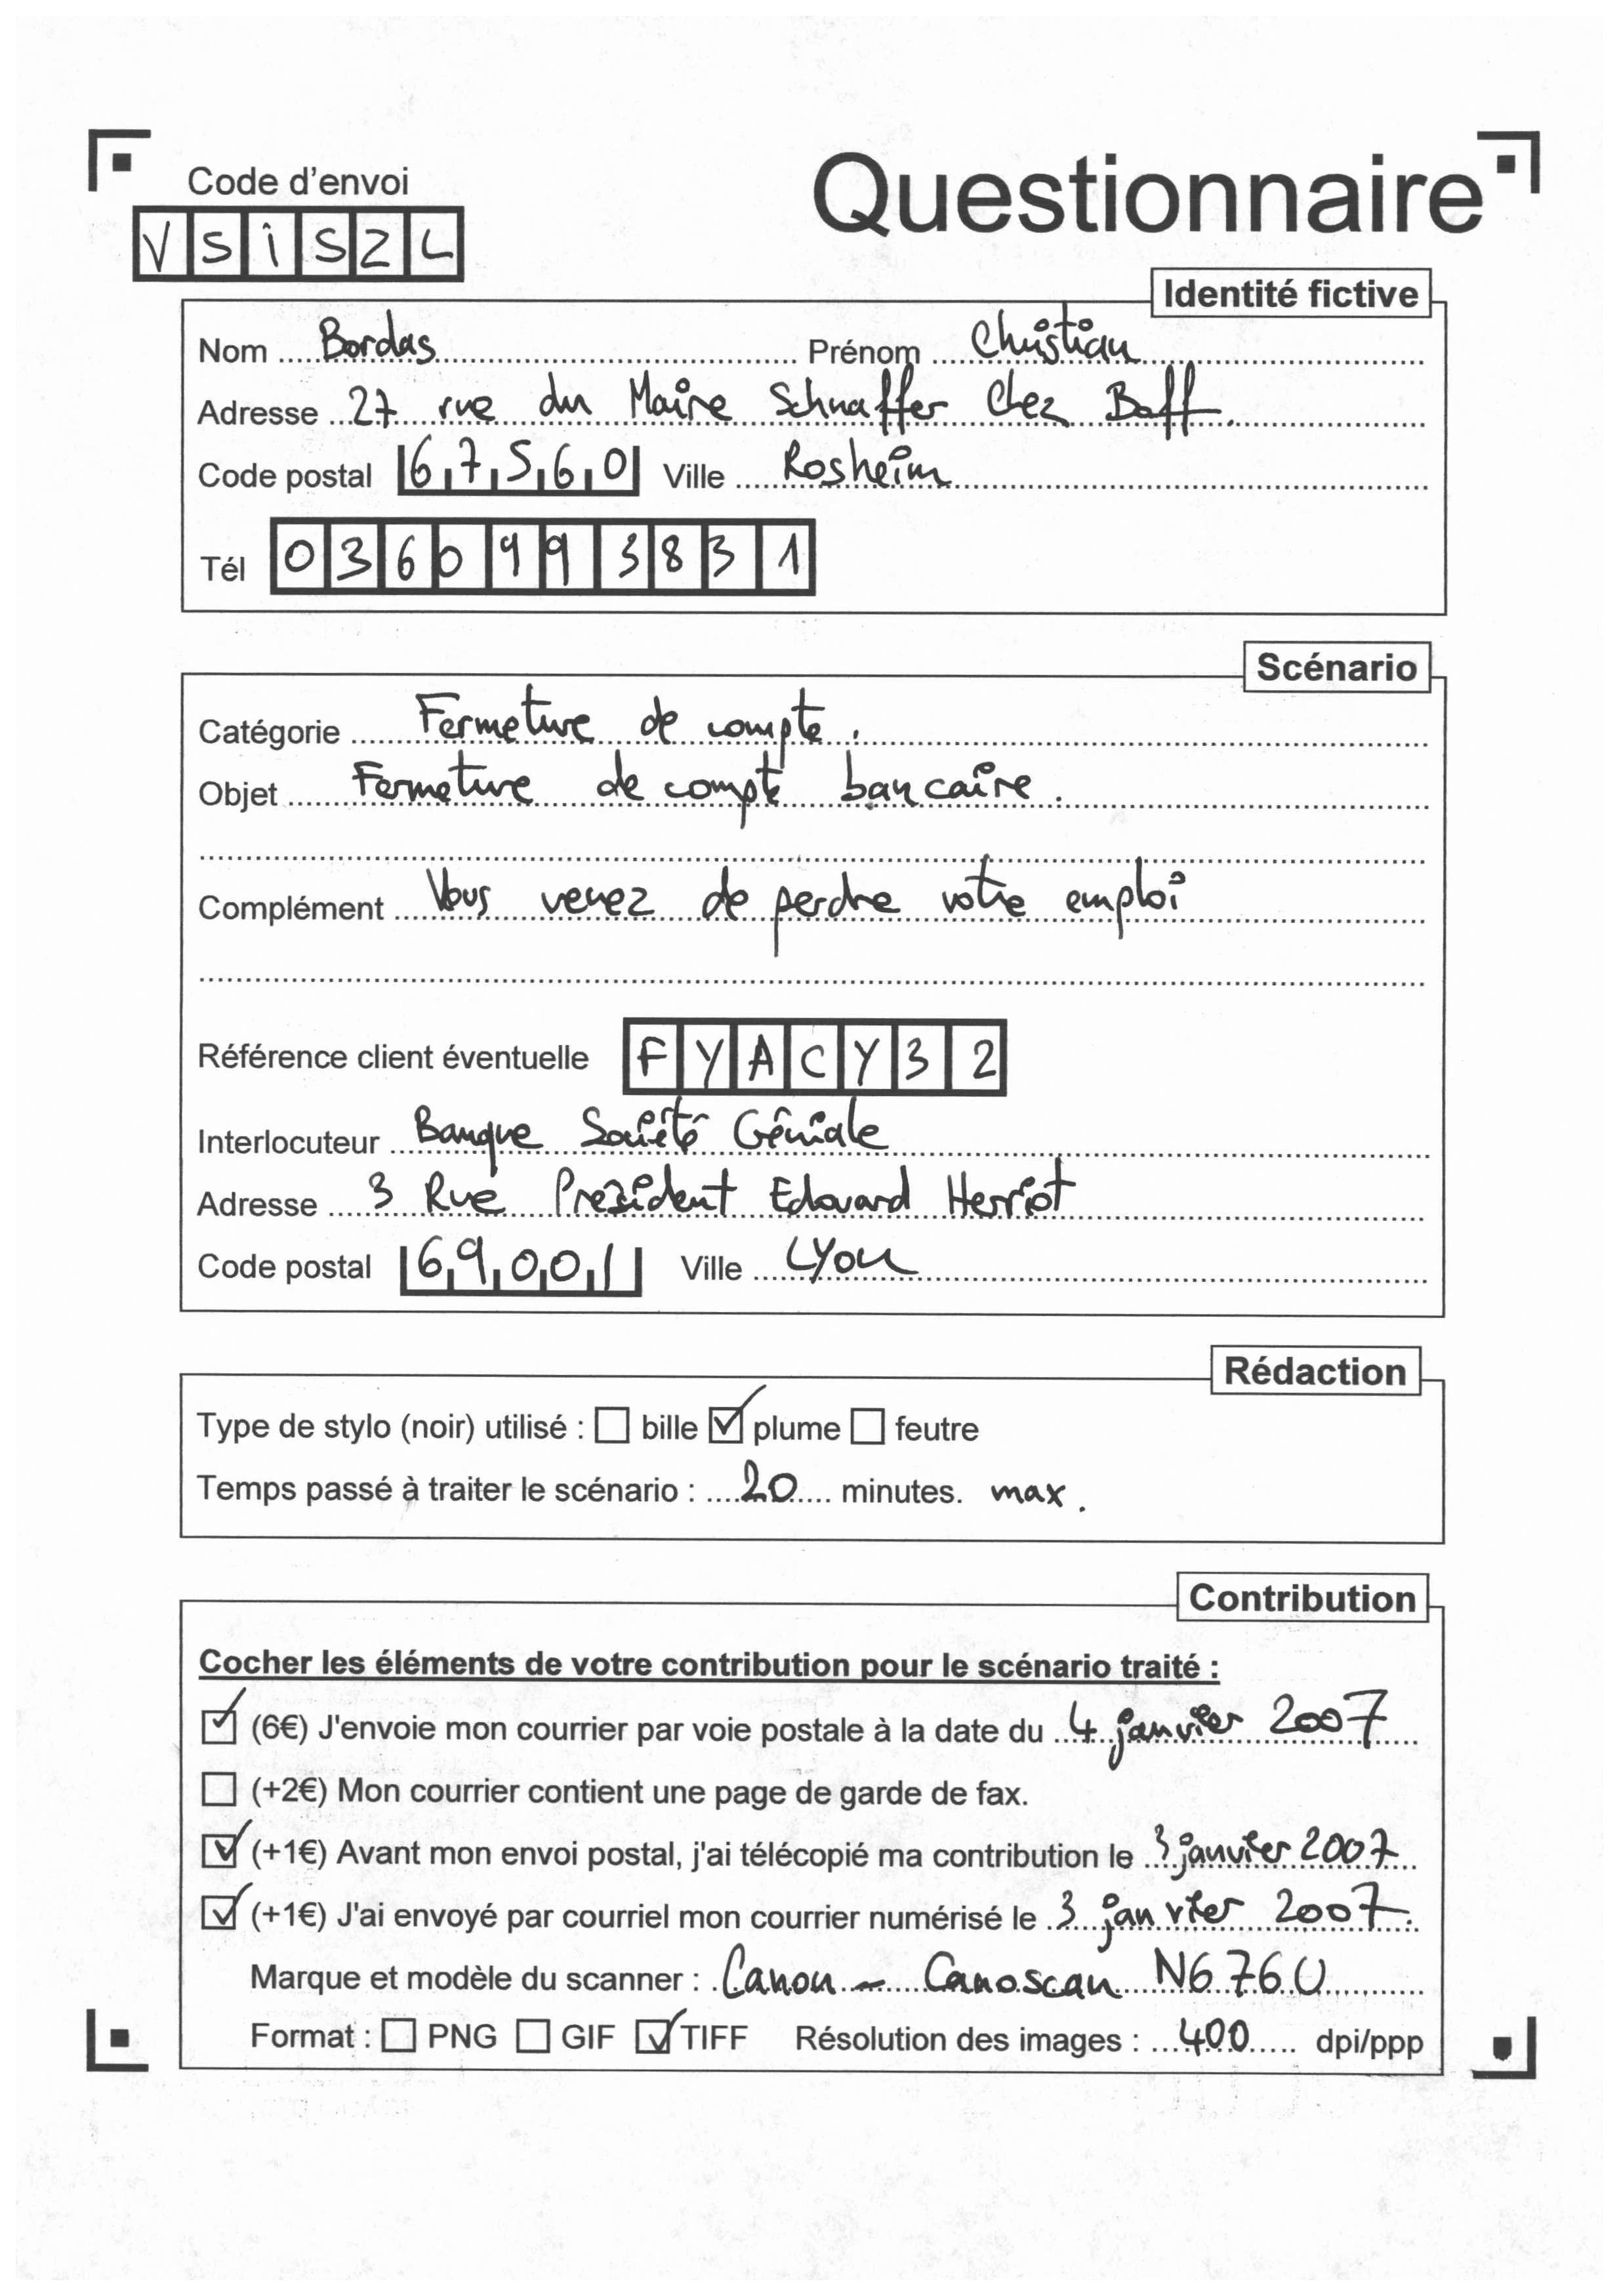 Code d'envoi
Questionnaire
V S i S Z L
Identité fictive
Nom Bordas Prénom Christian
Adresse 27 rue du Maire Schnaffer Chez Baff.
Code postal 67560 Ville Rosheim
Tél 0360993831
Scénario
Catégorie Fermeture de compte.
Objet Fermeture de compte bancaire.
Complément Vous venez de perdre votre emploi
Référence client éventuelle FYACY32
Interlocuteur Banque Société Géniale
Adresse 3 Rue Président Edouard Herriot
Code postal 69001 Ville Lyon
Rédaction
Type de stylo (noir) utilisé : ☐ bille ☑ plume ☐ feutre
Temps passé à traiter le scénario : 20 minutes. max.
Contribution
Cocher les éléments de votre contribution pour le scénario traité :
☑ (6€) J'envoie mon courrier par voie postale à la date du 4 janvier 2007
☐ (+2€) Mon courrier contient une page de garde de fax.
☑ (+1€) Avant mon envoi postal, j'ai télécopié ma contribution le 3 janvier 2007
☑ (+1€) J'ai envoyé par courriel mon courrier numérisé le 3 janvier 2007.
Marque et modèle du scanner : Canon - Canoscan N676U
Format : ☐ PNG ☐ GIF ☑ TIFF Résolution des images : 400 dpi/ppp